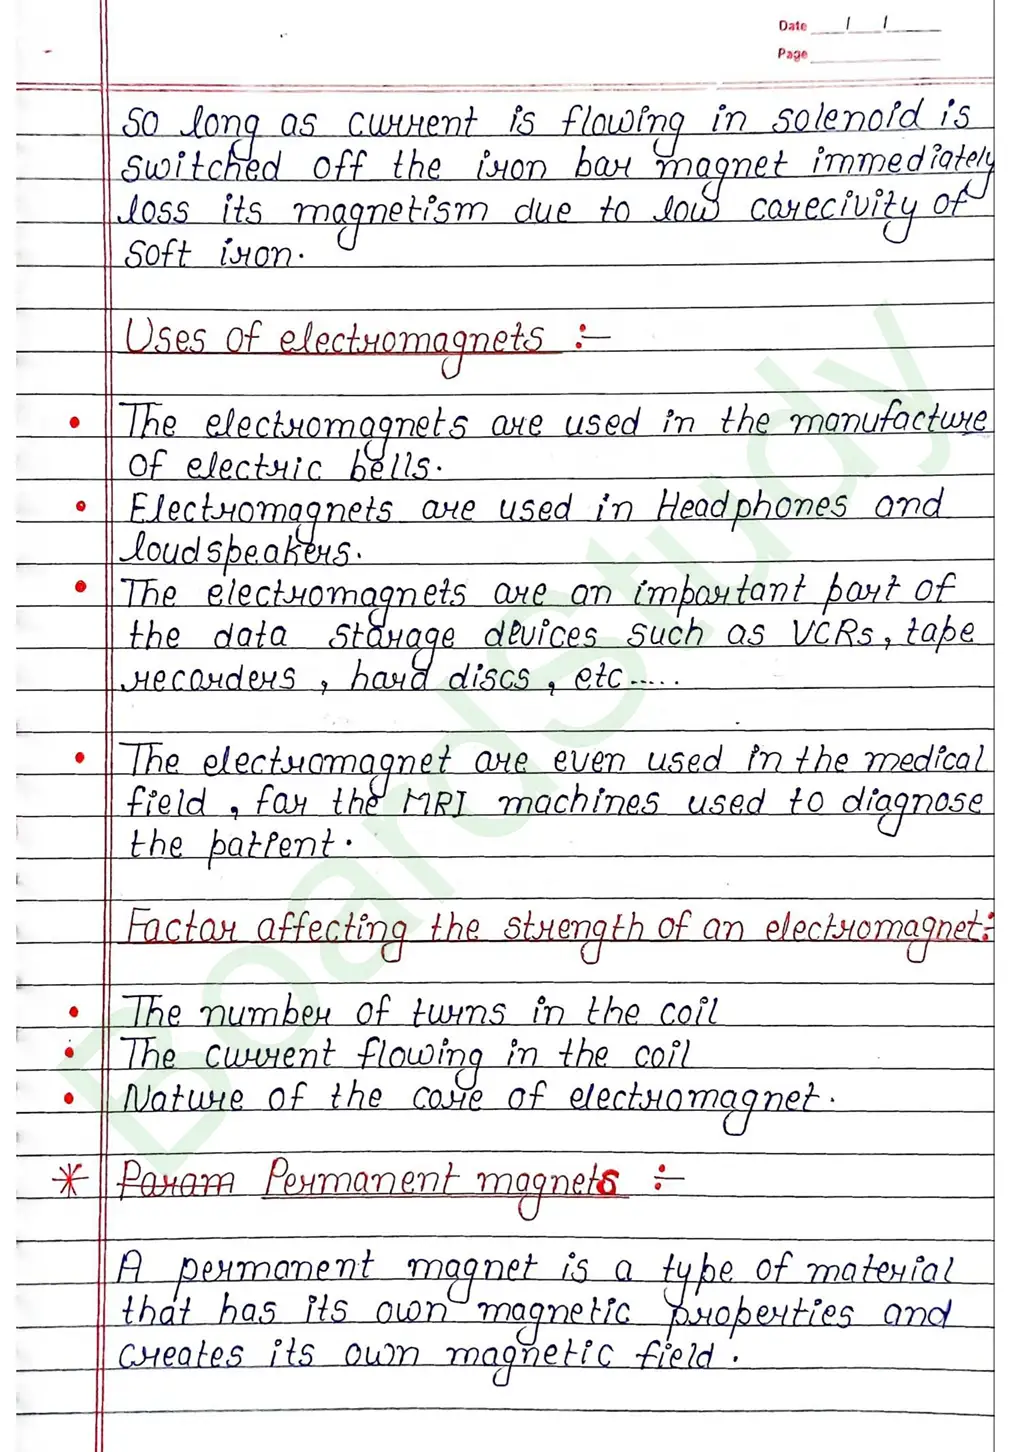 Date / /
Page
So long as current is flowing in solenoid is
switched off the iron bar magnet immediately
loss its magnetism due to low carecivity of
soft iron.
Uses of electromagnets :-
• The electromagnets are used in the manufacture
of electric bells.
• Electromagnets are used in Headphones and
loudspeakers.
• The electromagnets are an important part of
the data storage devices such as VCRs, tape
recorders, hard discs, etc.....
• The electromagnet are even used in the medical
field, for the MRI machines used to diagnose
the patient.
Factor affecting the strength of an electromagnet:-
• The number of turns in the coil
• The current flowing in the coil
• Nature of the core of electromagnet.
* Param Permanent magnets :-
A permanent magnet is a type of material
that has its own magnetic properties and
creates its own magnetic field.
BoardStudy